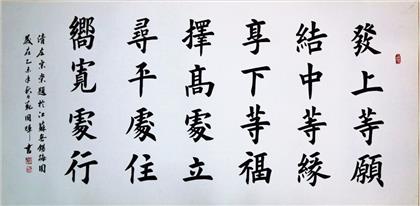 發上等願
結中等緣
享下等福
擇高處立
尋平處住
嚮寬處行
清左宗棠題於江蘇無錫梅園
歲在乙未年秋月范國璋書